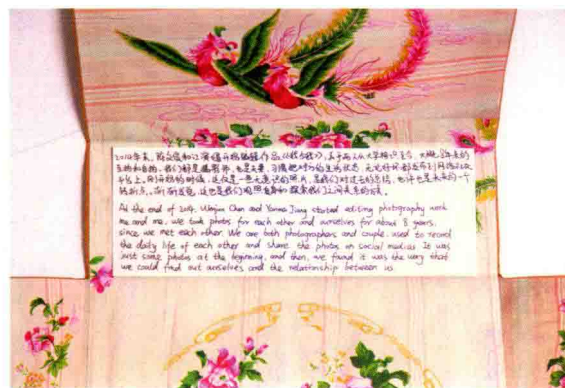 2014年末，陈文俊和江演媚开始编辑作品《我和我》，基于两人从大学相识至今，大概8年来的
互拍和自拍，我们都是摄影师，也是夫妻，习惯把对方的生活状态，无论好坏都发布到网络社交
平台上，刚开始的时候，这仅是一些无意识的照片，是我们对过去的总结，也许也是未来的一个
转折点，渐渐发觉，这也是我们用照片自和探索我们之间关系的方式。
At the end of 2014, Wenjun Chen and Yanmei Jiang started editing photography work
me and me, we took photos for each other and ourselves for about 8 years,
since we met each other. We are both photographers and couple, used to record
the daily life of each other and share the photos on social medias. It was
just some photos at the beginning, and then, we found it was the way that
we could find out ourselves and the relationship between us